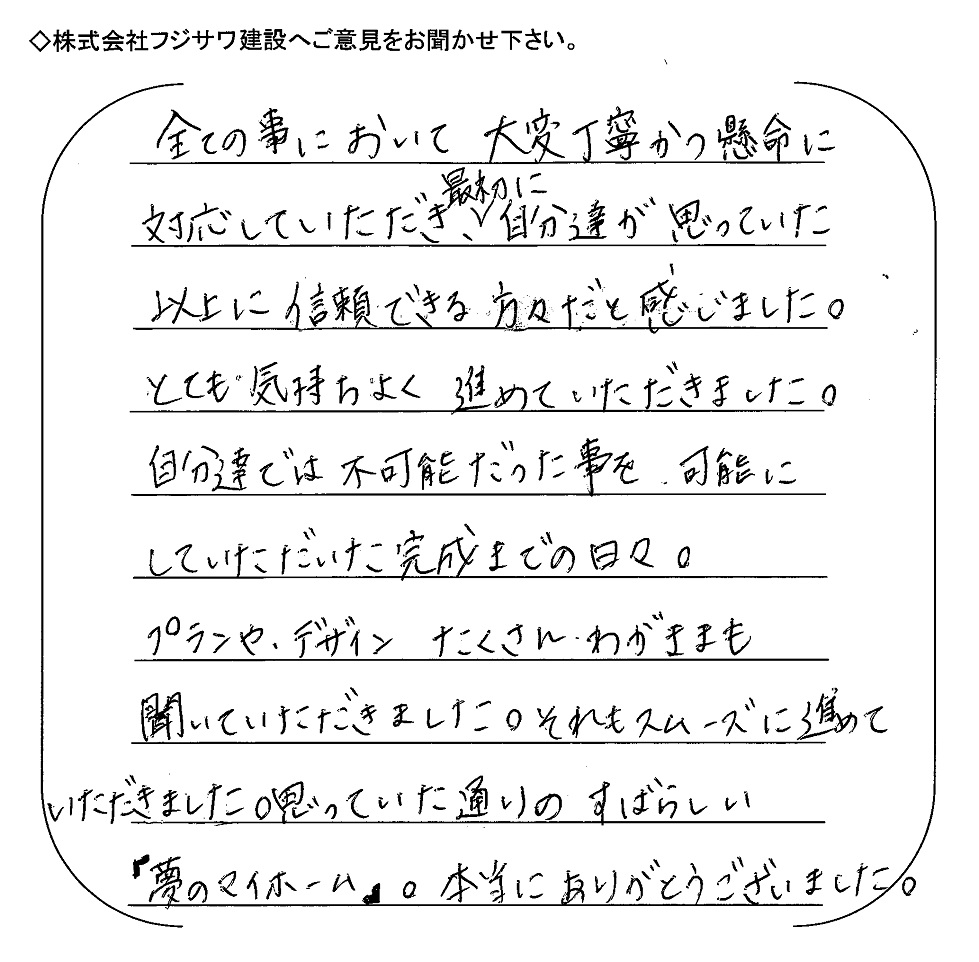 ◇株式会社フジサワ建設へご意見をお聞かせ下さい。
全ての事において 大変丁寧かつ懸命に
最初に
対応していただき、自分達が思っていた
以上に信頼できる方々だと感じました。
とても気持ちよく 進めていただきました。
自分達では不可能だった事を、可能に
していただいた完成までの日々。
プランや、デザイン たくさん・わがままも
聞いていただきました。それもスムーズに進めて
いただきました。思っていた通りの すばらしい
『夢のマイホーム』。本当にありがとうございました。